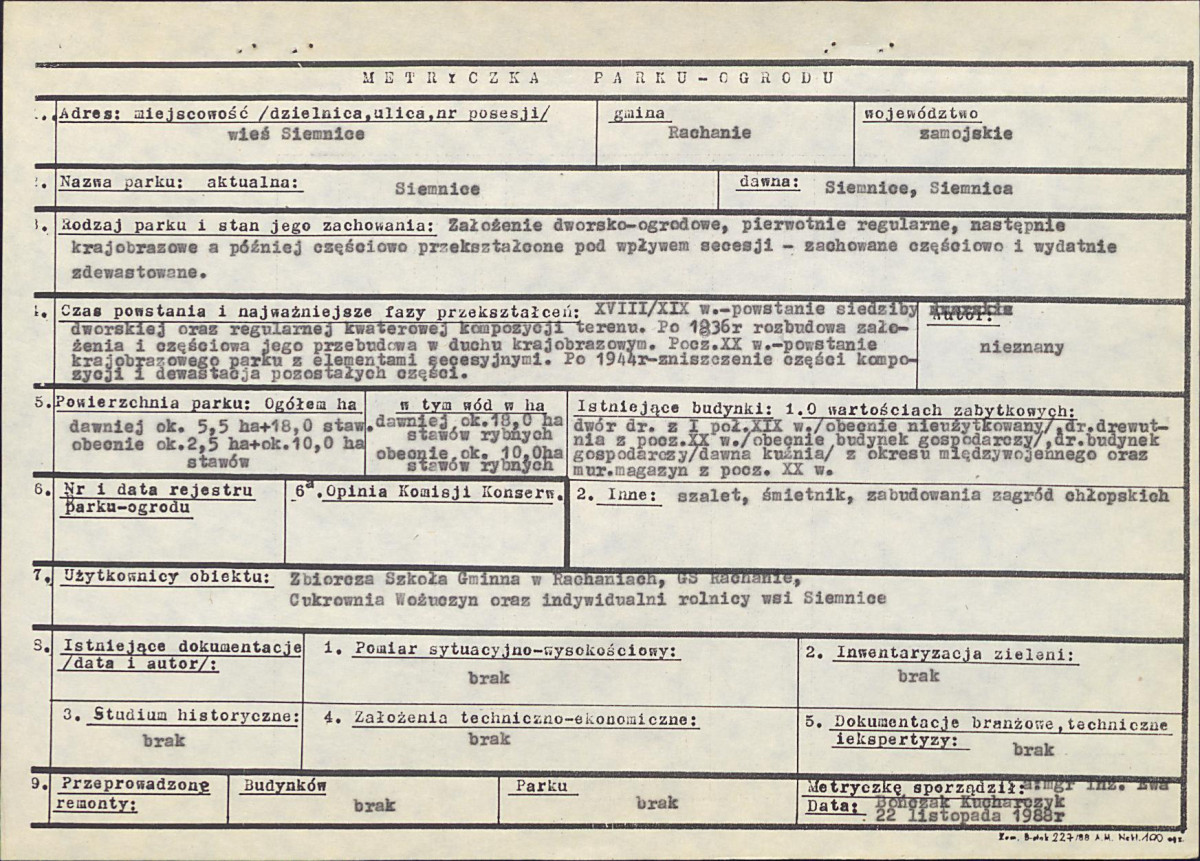 METRYCZKA PARKU-OGRODU
1. Adres: miejscowość /dzielnica,ulica,nr posesji/
wieś Siemnice
gmina
Rachanie
województwo
zamojskie
2. Nazwa parku: aktualna: Siemnice
dawna: Siemnice, Siemnica
3. Rodzaj parku i stan jego zachowania: Założenie dworsko-ogrodowe, pierwotnie regularne, następnie
krajobrazowe a później częściowo przekształcone pod wpływem secesji - zachowane częściowo i wydatnie
zdewastowane.
4. Czas powstania i najważniejsze fazy przekształceń: XVIII/XIX w.-powstanie siedziby
dworskiej oraz regularnej kwaterowej kompozycji terenu. Po 1836r rozbudowa zało-
żenia i częściowa jego przebudowa w duchu krajobrazowym. Pocz.XX w.-powstanie
krajobrazowego parku z elementami secesyjnymi. Po 1944r-zniszczenie części kompo-
zycji i dewastacja pozostałych części.
Autor:
nieznany
5. Powierzchnia parku: Ogółem ha
dawniej ok. 5,5 ha+18,0 staw.
obecnie ok.2,5 ha+ok.10,0 ha
stawów
w tym wód w ha
dawniej ok.18,0 ha
stawów rybnych
obecnie ok. 10,0ha
stawów rybnych
Istniejące budynki: 1.O wartościach zabytkowych:
dwór dr. z I poł.XIX w./obecnie nieużytkowany/,dr.drewut-
nia z pocz.XX w./obecnie budynek gospodarczy/,dr.budynek
gospodarczy/dawna kuźnia/ z okresu międzywojennego oraz
mur.magazyn z pocz. XX w.
6. Nr i data rejestru
parku-ogrodu
6a. Opinia Komisji Konserw.
2. Inne: szalet, śmietnik, zabudowania zagród chłopskich
7. Użytkownicy obiektu: Zbiorcza Szkoła Gminna w Rachaniach, GS Rachanie,
Cukrownia Wożuczyn oraz indywidualni rolnicy wsi Siemnice
8. Istniejące dokumentacje
/data i autor/:
1. Pomiar sytuacyjno-wysokościowy:
brak
2. Inwentaryzacja zieleni:
brak
3. Studium historyczne:
brak
4. Założenia techniczno-ekonomiczne:
brak
5. Dokumentacje branżowe,techniczne
iekspertyzy:
brak
9. Przeprowadzone
remonty:
Budynków
brak
Parku
brak
Metryczkę sporządził: mgr inż. Ewa
Bończak Kucharczyk
Data: 22 listopada 1988r
227/88 A.M. Nakł.100 egz.